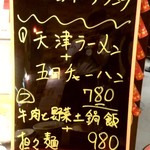 ① 天津ラーメン
+
五目チャーハン
780
② 牛肉と野菜土鍋飯
+
担々麺 980